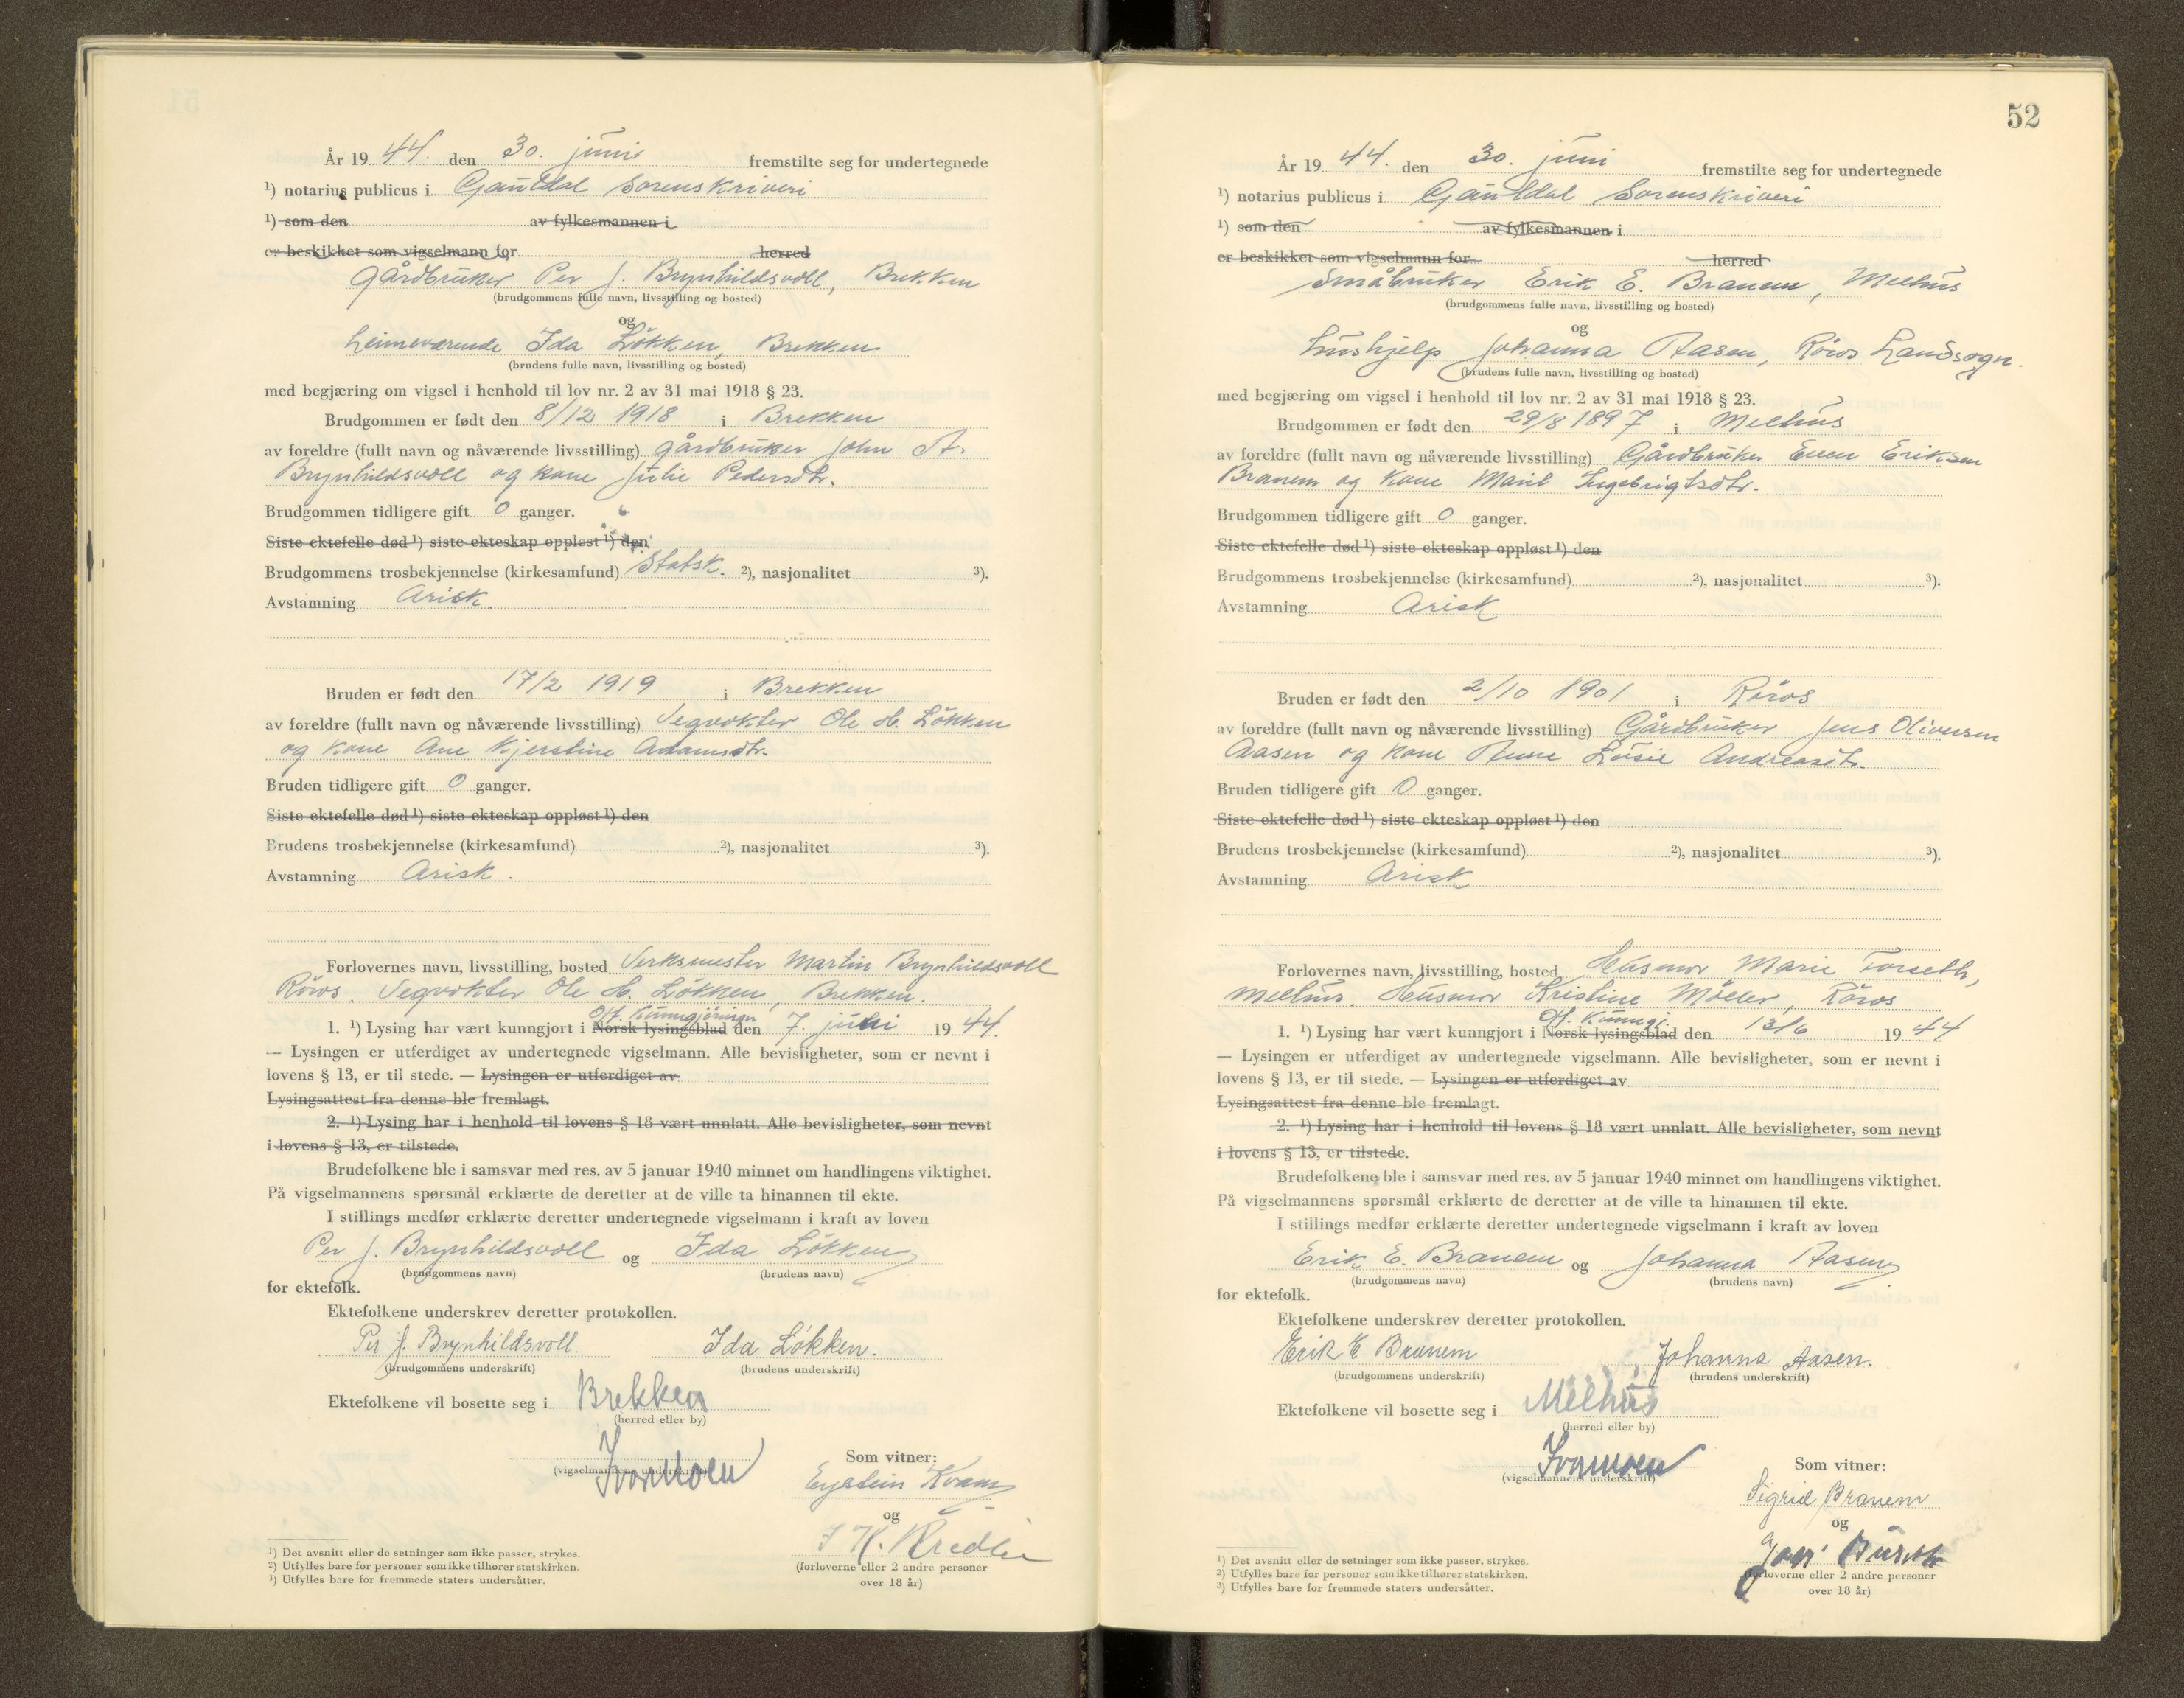 År 1944. den 30. juni fremstilte seg for undertegnede
¹) notarius publicus i Gauldal Sorenskriveri
¹) som den av fylkesmannen i
er beskikket som vigselmann for herred
Gårdbruker Per J. Brynhildsvoll, Brekken
(brudgommens fulle navn, livsstilling og bosted)
og
heimeværende Ida Løkken, Brekken
(brudens fulle navn, livsstilling og bosted)
med begjæring om vigsel i henhold til lov nr. 2 av 31 mai 1918 § 23.
Brudgommen er født den 8/12 1918 i Brekken
av foreldre (fullt navn og nåværende livsstilling) gårdbruker John A.
Brynhildsvoll og kone Julie Pedersdtr.
Brudgommen tidligere gift 0 ganger.
Siste ektefelle død ¹) siste ekteskap oppløst ¹) den
Brudgommens trosbekjennelse (kirkesamfund) Statsk. ²), nasjonalitet ³).
Avstamning Arisk.
Bruden er født den 17/2 1919 i Brekken
av foreldre (fullt navn og nåværende livsstilling) Vegvokter Ole H. Løkken
og kone Ane Kjerstine Adamsdtr.
Bruden tidligere gift 0 ganger.
Siste ektefelle død ¹) siste ekteskap oppløst ¹) den
Brudens trosbekjennelse (kirkesamfund) ²), nasjonalitet ³).
Avstamning Arisk.
Forlovernes navn, livsstilling, bosted Verksmester Martin Brynhildsvoll
Röros. Vegvokter Ole H. Løkken, Brekken.
Off. Kunngjöringer
1. ¹) Lysing har vært kunngjort i Norsk lysingsblad den 7. juni 1944.
— Lysingen er utferdiget av undertegnede vigselmann. Alle bevisligheter, som er nevnt i
lovens § 13, er til stede. — Lysingen er utferdiget av
Lysingsattest fra denne ble fremlagt.
2. ¹) Lysing har i henhold til lovens § 18 vært unnlatt. Alle bevisligheter, som nevnt
i lovens § 13, er tilstede.
Brudefolkene ble i samsvar med res. av 5 januar 1940 minnet om handlingens viktighet.
På vigselmannens spørsmål erklærte de deretter at de ville ta hinannen til ekte.
I stillings medfør erklærte deretter undertegnede vigselmann i kraft av loven
Per J. Brynhildsvoll og Ida Løkken
(brudgommens navn) (brudens navn)
for ektefolk.
Ektefolkene underskrev deretter protokollen.
Per J. Brynhildsvoll. Ida Løkken.
(brudgommens underskrift) (brudens underskrift)
Ektefolkene vil bosette seg i Brekken
(herred eller by)
Som vitner:
(vigselmannens underskrift)
Eystein Kvam
og
(forloverne eller 2 andre personer
over 18 år)
¹) Det avsnitt eller de setninger som ikke passer, strykes.
²) Utfylles bare for personer som ikke tilhører statskirken.
³) Utfylles bare for fremmede staters undersåtter.
52
År 1944. den 30. juni fremstilte seg for undertegnede
¹) notarius publicus i Gauldal Sorenskriveri
¹) som den av fylkesmannen i
er beskikket som vigselmann for herred
Småbruker Erik E. Branem, Melhus
(brudgommens fulle navn, livsstilling og bosted)
og
hushjelp Johanna Aasen, Röros Landsogn.
(brudens fulle navn, livsstilling og bosted)
med begjæring om vigsel i henhold til lov nr. 2 av 31 mai 1918 § 23.
Brudgommen er født den 29/8 1897 i Melhus
av foreldre (fullt navn og nåværende livsstilling) Gårdbruker Even Eriksen
Branem og kone Marit Ingebrigtsdtr.
Brudgommen tidligere gift 0 ganger.
Siste ektefelle død ¹) siste ekteskap oppløst ¹) den
Brudgommens trosbekjennelse (kirkesamfund) ²), nasjonalitet ³).
Avstamning Arisk
Bruden er født den 2/10 1901 i Röros
av foreldre (fullt navn og nåværende livsstilling) Gårdbruker Jens Oliversen
Aasen og kone Anne Lusie Andreasdtr.
Bruden tidligere gift 0 ganger.
Siste ektefelle død ¹) siste ekteskap oppløst ¹) den
Brudens trosbekjennelse (kirkesamfund) ²), nasjonalitet ³).
Avstamning Arisk
Forlovernes navn, livsstilling, bosted Husmor Marie Torseth,
Melhus. Husmor Kristine Möller, Röros
Off. Kunngj.
1. ¹) Lysing har vært kunngjort i Norsk lysingsblad den 13/6 1944
— Lysingen er utferdiget av undertegnede vigselmann. Alle bevisligheter, som er nevnt i
lovens § 13, er til stede. — Lysingen er utferdiget av
Lysingsattest fra denne ble fremlagt.
2. ¹) Lysing har i henhold til lovens § 18 vært unnlatt. Alle bevisligheter, som nevnt
i lovens § 13, er tilstede.
Brudefolkene ble i samsvar med res. av 5 januar 1940 minnet om handlingens viktighet.
På vigselmannens spørsmål erklærte de deretter at de ville ta hinannen til ekte.
I stillings medfør erklærte deretter undertegnede vigselmann i kraft av loven
Erik E. Branem og Johanna Aasen
(brudgommens navn) (brudens navn)
for ektefolk.
Ektefolkene underskrev deretter protokollen.
Erik E Branem Johanna Aasen.
(brudgommens underskrift) (brudens underskrift)
Ektefolkene vil bosette seg i Melhus
(herred eller by)
Som vitner:
(vigselmannens underskrift)
Sigrid Branem
og
(forloverne eller 2 andre personer
over 18 år)
¹) Det avsnitt eller de setninger som ikke passer, strykes.
²) Utfylles bare for personer som ikke tilhører statskirken.
³) Utfylles bare for fremmede staters undersåtter.